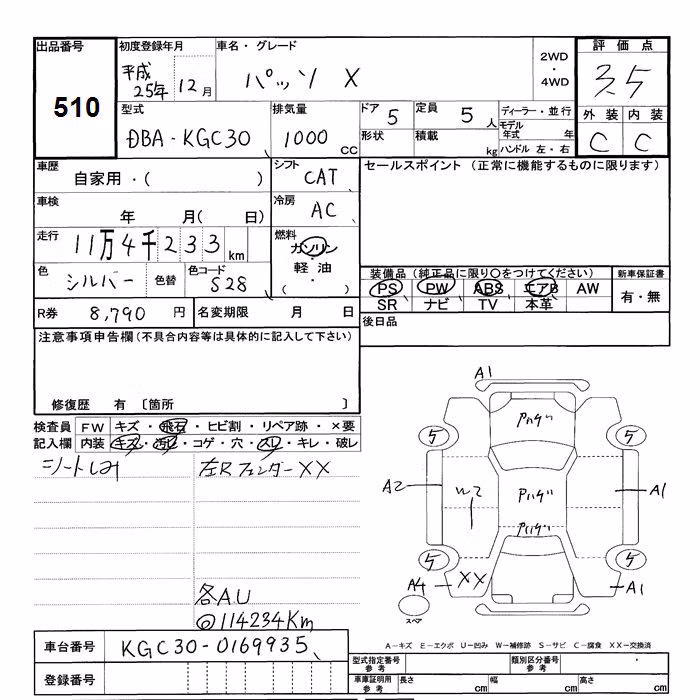 出品番号 初度登録年月 車名・グレード 2WD ・ 4WD 評価点
510 平成25年 12月 パッソ X 3.5
型式 排気量 ドア 5 定員 5人 ディーラー・並行 外装 内装
DBA-KGC30 1000cc 形状 積載 kg モデル年式 年 C C
ハンドル 左・右
車歴 シフト セールスポイント (正常に機能するものに限ります)
自家用・( ) CAT
車検 冷房
年 月( 日) AC
走行 燃料
11万4千233km ガソリン・軽油・( )
色 シルバー 色替 色コード S28
装備品(純正品に限り〇をつけてください) 新車保証書
PS PW ABS エアB AW 有・無
SR ナビ TV 本革
R券 8,790円 名変期限 月 日
後日品
注意事項申告欄(不具合内容等は具体的に記入して下さい)
修復歴 有 〔箇所 〕
検査員 FW キズ・飛石・ヒビ割・リペア跡・×要
記入欄 内装 キズ・汚れ・コゲ・穴・スレ・キレ・破レ
シートしみ 左Rフェンダー XX
各A.U
◎114234Km
A1
5 5
A2 W2 A1
5 5
A4 XX A1
スペア
A−キズ E−エクボ U−凹み W−補修跡 S−サビ C−腐食 XX−交換済
車台番号 KGC30-0169935
登録番号
型式指定番号 参考 類別区分番号 参考
車庫証明用 参考 長さ cm 幅 cm 高さ cm